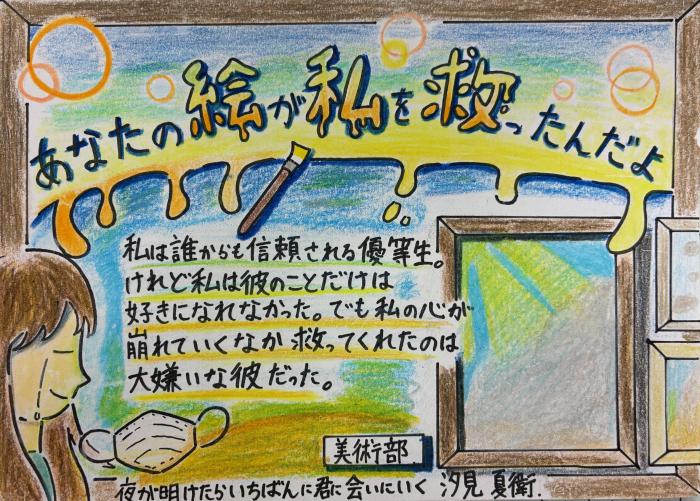 あなたの絵が私を救ったんだよ
私は誰からも信頼される優等生。
けれど私は彼のことだけは
好きになれなかった。でも私の心が
崩れていくなか救ってくれたのは
大嫌いな彼だった。
美術部
夜が明けたらいちばんに君に会いにいく 汐見 夏衛